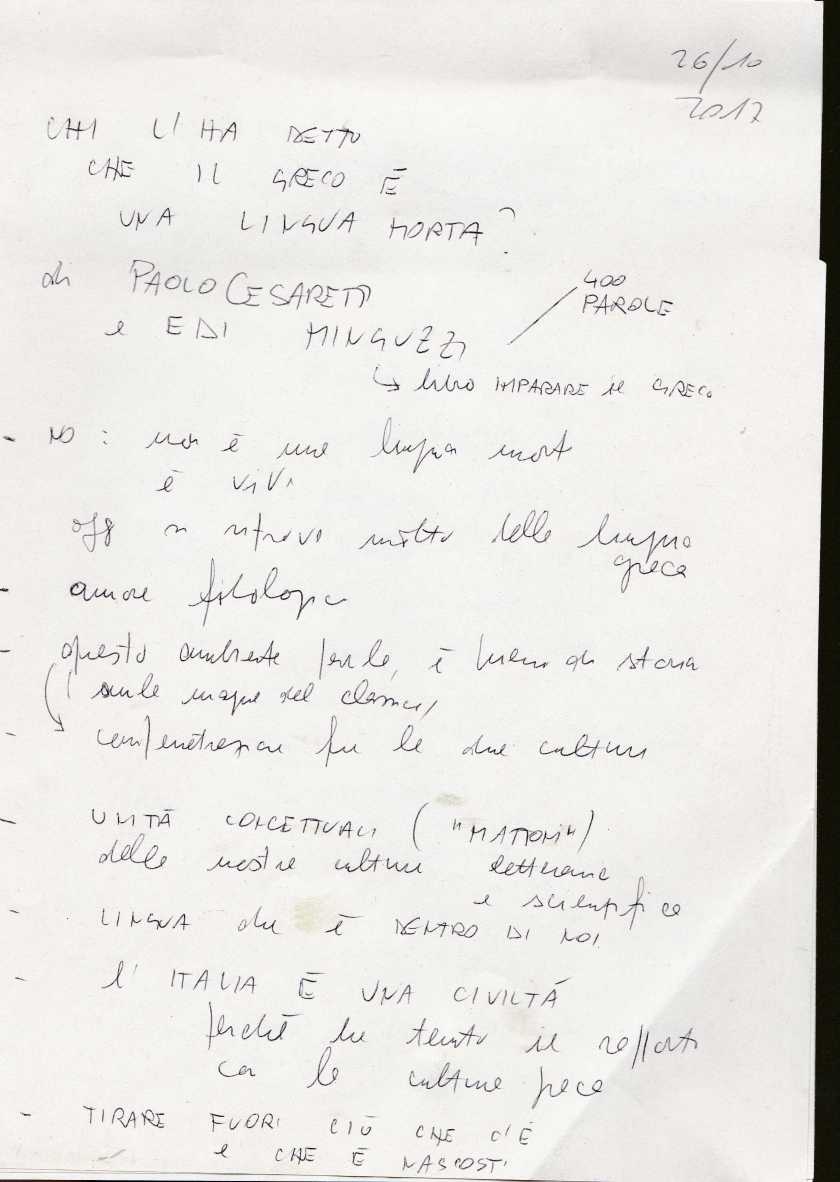 26/10
2017
CHI L'HA DETTO
CHE IL GRECO È
UNA LINGUA MORTA?
di PAOLO CESARETTI
400
PAROLE
e EDI MINGUZZI
↳ libro IMPARARE il GRECO
- NO : non è una lingua mort
è viva
oggi si ritrova molto della lingua
greca
- amore filologia
- questo ambiente, è pieno di storia
sulle del classico,
- compenetrazione fra le due culture
- UNITÀ CONCETTUALI ("MATTONI")
delle nostre culture letteraria
e scientifica
- LINGUA che è DENTRO DI NOI
- l'ITALIA È UNA CIVILTÀ
perché ha tenuto il rapporto
con la cultura greca
- TIRARE FUORI CIÒ CHE C'È
e CHE È NASCOSTO